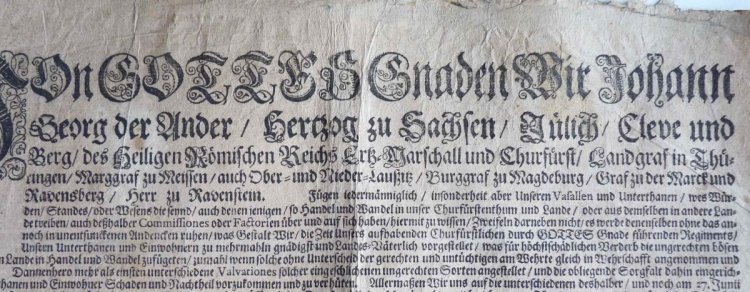 Von GOTTES Gnaden Wir Johann
Georg der Ander / Hertzog zu Sachsen / Jülich / Cleve und
Berg / des Heiligen Römischen Reichs Ertz-Marschall und Churfürst / Landgraf in Thü-
ringen / Marggraf zu Meissen / auch Ober- und Nieder-Laußitz / Burggraf zu Magdeburg / Graf zu der Marck und
Ravensberg / Herr zu Ravenstein. Fügen iedermänniglich / insonderheit aber Unseren Vasallen und Unterthanen / wes Wür-
den / Standes / oder Wesens die seynd / auch denen jenigen / so Handel und Wandel in unser Churfürstenthum und Lande / oder aus demselben in andere Lan-
de treiben / auch deßhalber Commissiones oder Factorien über und auf sich haben / hiermit zu wissen / Zweifeln darneben nicht / es werde denenselben ohne das an-
noch in unentfunckenen Andencken ruhen / was Gestalt Wir / die Zeit Unsers aufhabenden Churfürstlichen durch GOTTES Gnade führenden Regiments /
Unsern Unterthanen und Einwohnern zu mehrmahln gnädigst und Landes-Väterlich vorgestellet / was für höchstschädlichen Verderb die ungerechten bösen
n Lande in Handel und Wandel zufügeten / zumahl wenn solche ohne Unterscheid der gerechten und untüchtigen am Wehrte gleich in Wehrschafft angenommen und
Dannenhero mehr als einsten unterschiedene Valvationes solcher eingeschlichenen ungerechten Sorten angestellet / und die obliegende Sorgfalt dahin eingerich-
thanen und Einwohner Schaden und Nachtheil vorzukommen und zu verhüten. Allermaßen Wir uns auf die unterschiedenen deßhalber / und noch am 27. Junii